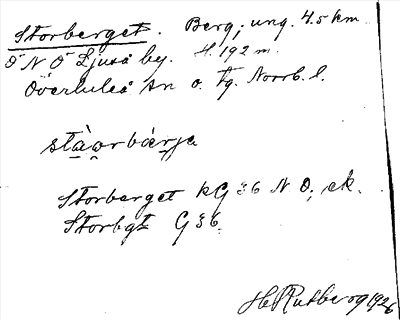 Storberget. Berg; ung. 4.5 km
O N O Ljuså by. H. 192 m.
Överluleå sn o. tg. Norrb. l.
stàorbárja
Storberget kG 36 N O; ek.
Storbgt G 36.
H Rutberg 1926